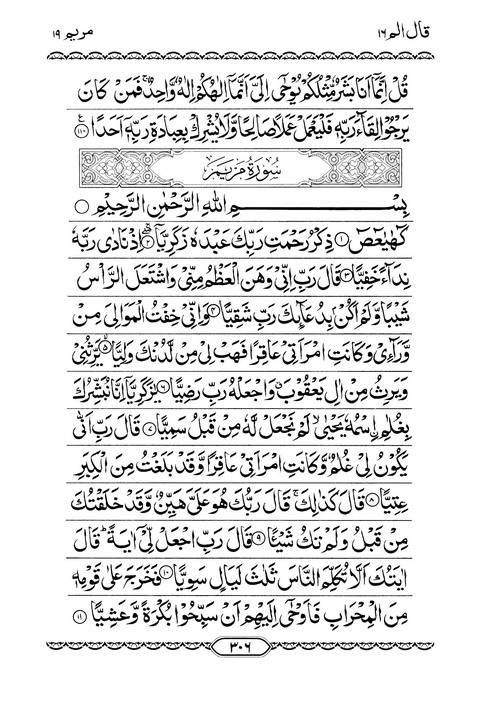 قال الم ١٦
مريم ١٩
قُلْ اِنَّمَاۤ اَنَا بَشَرٌ مِّثْلُكُمْ يُوْحٰۤى اِلَيَّ اَنَّمَاۤ اِلٰهُكُمْ اِلٰهٌ وَّاحِدٌ ۚ فَمَنْ كَانَ
يَرْجُوْا لِقَآءَ رَبِّهٖ فَلْيَعْمَلْ عَمَلًا صَالِحًا وَّلَا يُشْرِكْ بِعِبَادَةِ رَبِّهٖۤ اَحَدًا ۝١١٠
سُوْرَةُ مَرْيَمَ
بِسْمِ اللّٰهِ الرَّحْمٰنِ الرَّحِيْمِ
كٓهٰيٰعٓصٓ ۝١ ذِكْرُ رَحْمَتِ رَبِّكَ عَبْدَهٗ زَكَرِيَّا ۝٢ اِذْ نَادٰى رَبَّهٗ
نِدَآءً خَفِيًّا ۝٣ قَالَ رَبِّ اِنِّيْ وَهَنَ الْعَظْمُ مِنِّيْ وَاشْتَعَلَ الرَّاْسُ
شَيْبًا وَّلَمْ اَكُنْۢ بِدُعَآئِكَ رَبِّ شَقِيًّا ۝٤ وَاِنِّيْ خِفْتُ الْمَوَالِيَ مِنْ
وَّرَآءِيْ وَكَانَتِ امْرَاَتِيْ عَاقِرًا فَهَبْ لِيْ مِنْ لَّدُنْكَ وَلِيًّا ۝٥ يَّرِثُنِيْ
وَيَرِثُ مِنْ اٰلِ يَعْقُوْبَ ۖ وَاجْعَلْهُ رَبِّ رَضِيًّا ۝٦ يٰزَكَرِيَّاۤ اِنَّا نُبَشِّرُكَ
بِغُلٰمِ ِۨاسْمُهٗ يَحْيٰى ۙ لَمْ نَجْعَلْ لَّهٗ مِنْ قَبْلُ سَمِيًّا ۝٧ قَالَ رَبِّ اَنّٰى
يَكُوْنُ لِيْ غُلٰمٌ وَّكَانَتِ امْرَاَتِيْ عَاقِرًا وَّقَدْ بَلَغْتُ مِنَ الْكِبَرِ
عِتِيًّا ۝٨ قَالَ كَذٰلِكَ ۚ قَالَ رَبُّكَ هُوَ عَلَيَّ هَيِّنٌ وَّقَدْ خَلَقْتُكَ
مِنْ قَبْلُ وَلَمْ تَكُ شَيْـًٔا ۝٩ قَالَ رَبِّ اجْعَلْ لِّيْۤ اٰيَةً ؕ قَالَ
اٰيَتُكَ اَلَّا تُكَلِّمَ النَّاسَ ثَلٰثَ لَيَالٍ سَوِيًّا ۝١٠ فَخَرَجَ عَلٰى قَوْمِهٖ
مِنَ الْمِحْرَابِ فَاَوْحٰۤى اِلَيْهِمْ اَنْ سَبِّحُوْا بُكْرَةً وَّعَشِيًّا ۝١١
٣٠٦